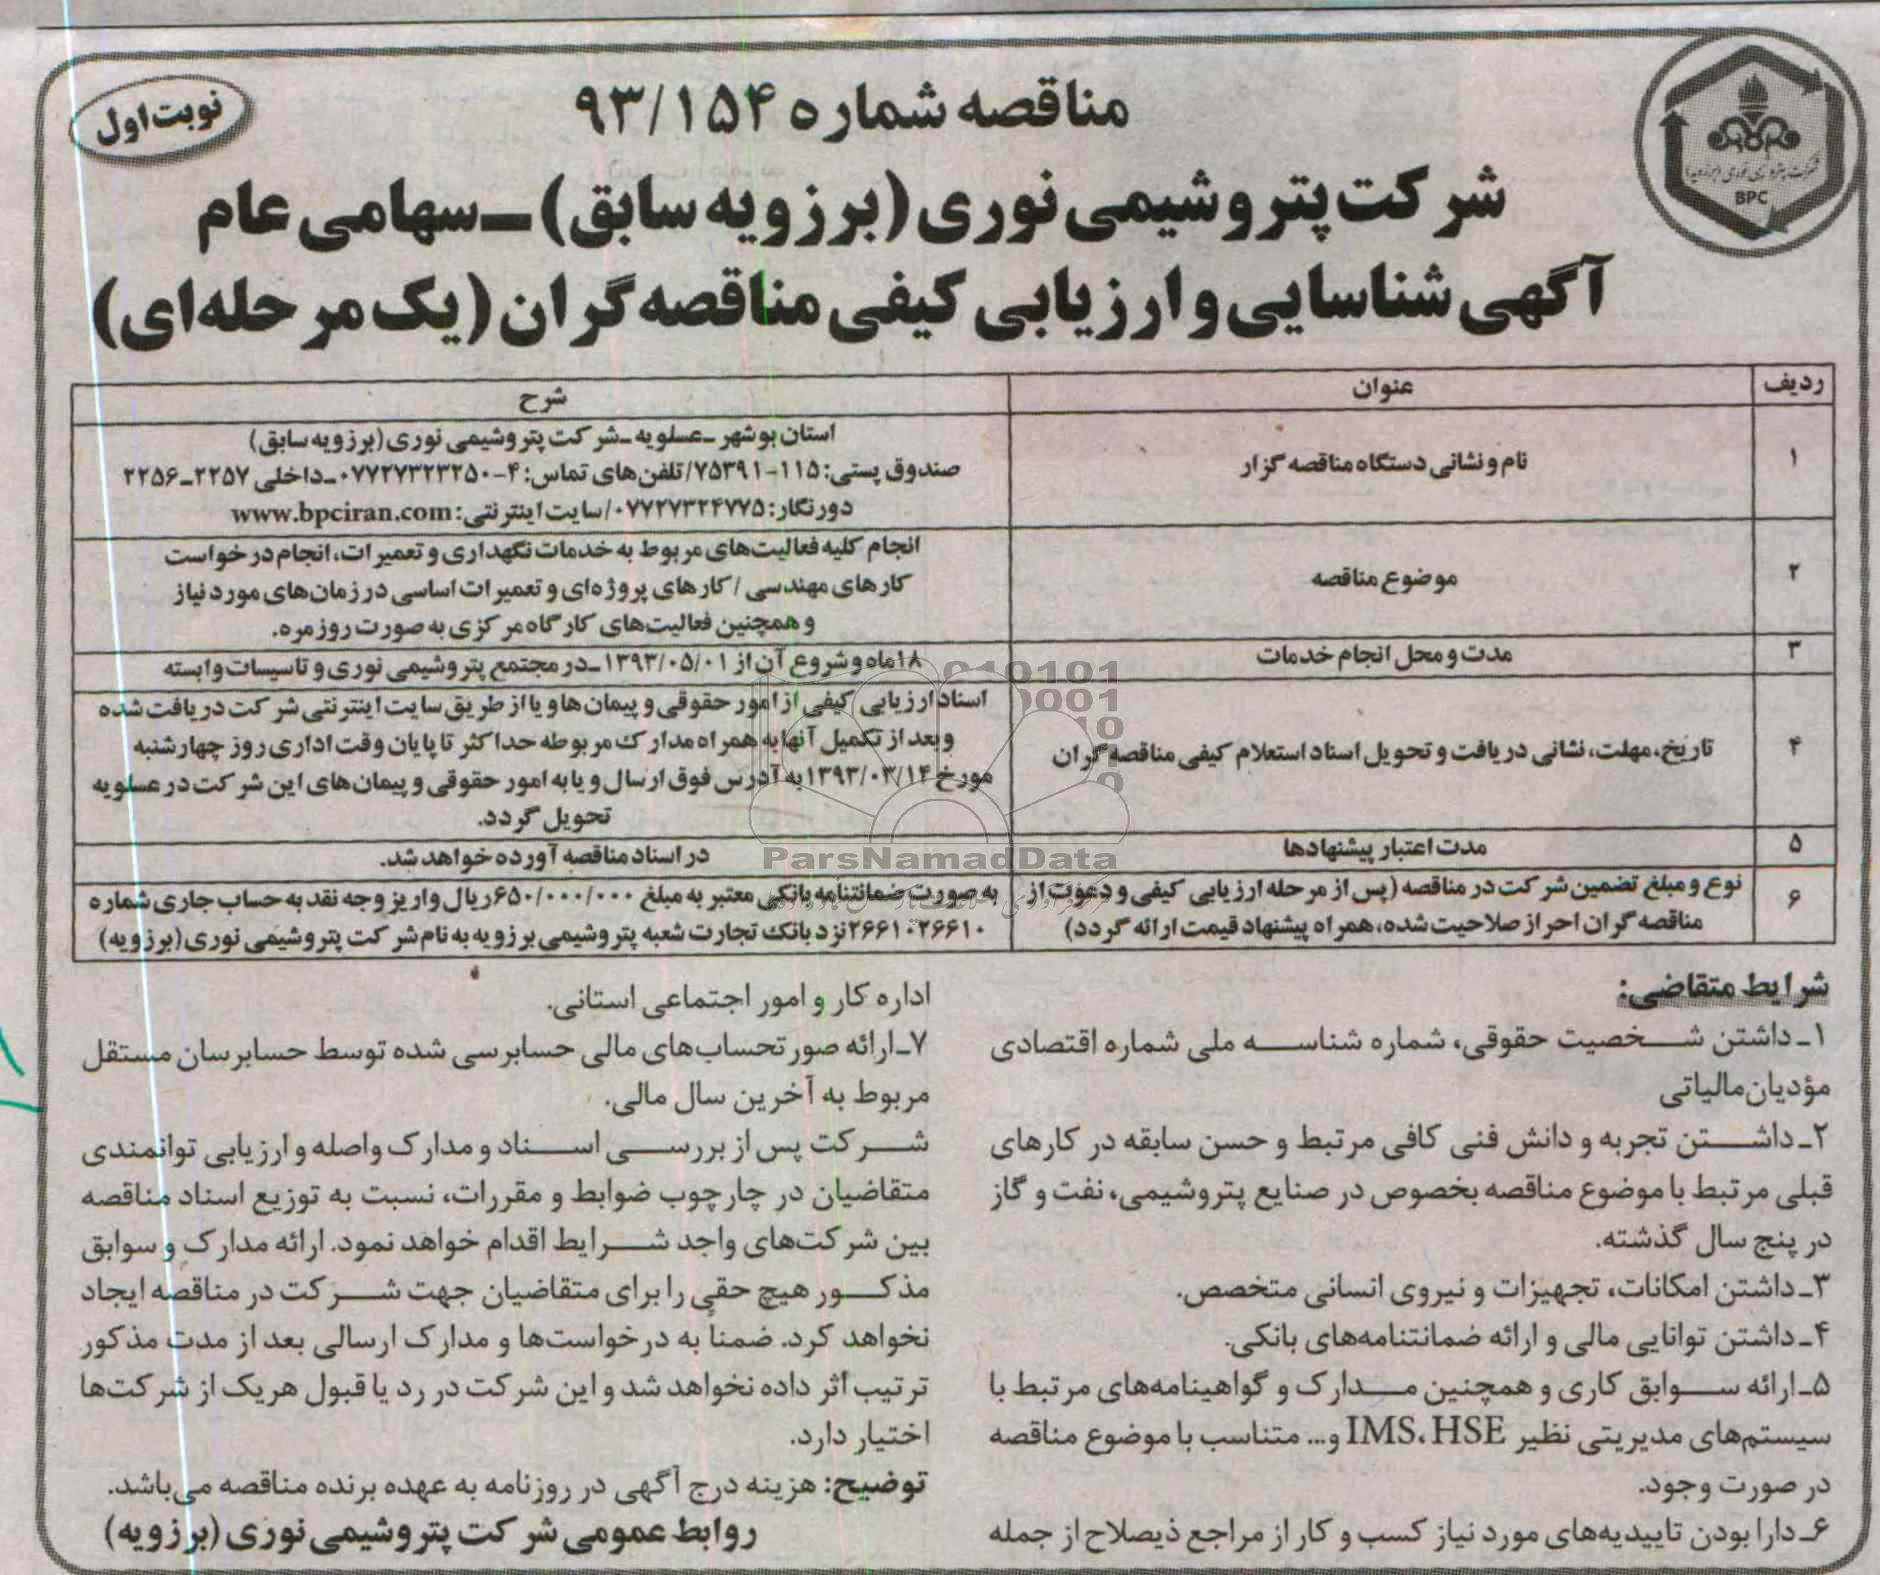 مناقصه شماره ۹۳/۱۵۴
نوبت اول
شرکت پتروشیمی نوری (برزویه سابق) ـ سهامی عام
BPC
آگهی شناسایی و ارزیابی کیفی مناقصه گران (یک مرحله‌ای)
ردیف عنوان شرح
۱ نام و نشانی دستگاه مناقصه گزار
استان بوشهر ـ عسلویه ـ شرکت پتروشیمی نوری (برزویه سابق)
صندوق پستی: ۱۱۵-۷۵۳۹۱/ تلفن های تماس: ۴-۰۷۷۲۷۳۲۳۲۵۰ ـ داخلی ۲۲۵۷ ـ ۲۲۵۶
دورنگار: ۰۷۷۲۷۳۲۴۷۷۵/ سایت اینترنتی: www.bpciran.com
۲ موضوع مناقصه
انجام کلیه فعالیت‌های مربوط به خدمات نگهداری و تعمیرات، انجام درخواست
کارهای مهندسی / کارهای پروژه‌ای و تعمیرات اساسی در زمان‌های مورد نیاز
و همچنین فعالیت‌های کارگاه مرکزی به صورت روزمره.
۳ مدت و محل انجام خدمات
۱۸ ماه و شروع آن از ۱۳۹۳/۰۵/۰۱ ـ در مجتمع پتروشیمی نوری و تاسیسات وابسته
۴ تاریخ، مهلت، نشانی دریافت و تحویل اسناد استعلام کیفی مناقصه گران
اسناد ارزیابی کیفی از امور حقوقی و پیمان ها و یا از طریق سایت اینترنتی شرکت دریافت شده
و بعد از تکمیل آنها به همراه مدارک مربوطه حداکثر تا پایان وقت اداری روز چهارشنبه
مورخ ۱۳۹۳/۰۳/۱۴ به آدرس فوق ارسال و یا به امور حقوقی و پیمان‌های این شرکت در عسلویه
تحویل گردد.
۵ مدت اعتبار پیشنهادها
در اسناد مناقصه آورده خواهد شد.
ParsNamadData
۶ نوع و مبلغ تضمین شرکت در مناقصه (پس از مرحله ارزیابی کیفی و دعوت از
مناقصه گران احراز صلاحیت شده، همراه پیشنهاد قیمت ارائه گردد)
به صورت ضمانتنامه بانکی معتبر به مبلغ ۶۵۰/۰۰۰/۰۰۰ ریال واریز وجه نقد به حساب جاری شماره
۲۶۶۱۰۲۶۶۱۰ نزد بانک تجارت شعبه پتروشیمی برزویه به نام شرکت پتروشیمی نوری (برزویه)
شرایط متقاضی:
۱ـ داشتن شخصیت حقوقی، شماره شناسه ملی شماره اقتصادی
مؤدیان مالیاتی
۲ـ داشتن تجربه و دانش فنی کافی مرتبط و حسن سابقه در کارهای
قبلی مرتبط با موضوع مناقصه بخصوص در صنایع پتروشیمی، نفت و گاز
در پنج سال گذشته.
۳ـ داشتن امکانات، تجهیزات و نیروی انسانی متخصص.
۴ـ داشتن توانایی مالی و ارائه ضمانتنامه‌های بانکی.
۵ـ ارائه سوابق کاری و همچنین مدارک و گواهینامه‌های مرتبط با
سیستم‌های مدیریتی نظیر IMS، HSE و... متناسب با موضوع مناقصه
در صورت وجود.
۶ـ دارا بودن تاییدیه‌های مورد نیاز کسب و کار از مراجع ذیصلاح از جمله
اداره کار و امور اجتماعی استانی.
۷ـ ارائه صورتحساب‌های مالی حسابرسی شده توسط حسابرسان مستقل
مربوط به آخرین سال مالی.
شرکت پس از بررسی اسناد و مدارک واصله و ارزیابی توانمندی
متقاضیان در چارچوب ضوابط و مقررات، نسبت به توزیع اسناد مناقصه
بین شرکت‌های واجد شرایط اقدام خواهد نمود. ارائه مدارک و سوابق
مذکور هیچ حقی را برای متقاضیان جهت شرکت در مناقصه ایجاد
نخواهد کرد. ضمناً به درخواست‌ها و مدارک ارسالی بعد از مدت مذکور
ترتیب اثر داده نخواهد شد و این شرکت در رد یا قبول هریک از شرکت‌ها
اختیار دارد.
توضیح: هزینه درج آگهی در روزنامه به عهده برنده مناقصه می‌باشد.
روابط عمومی شرکت پتروشیمی نوری (برزویه)